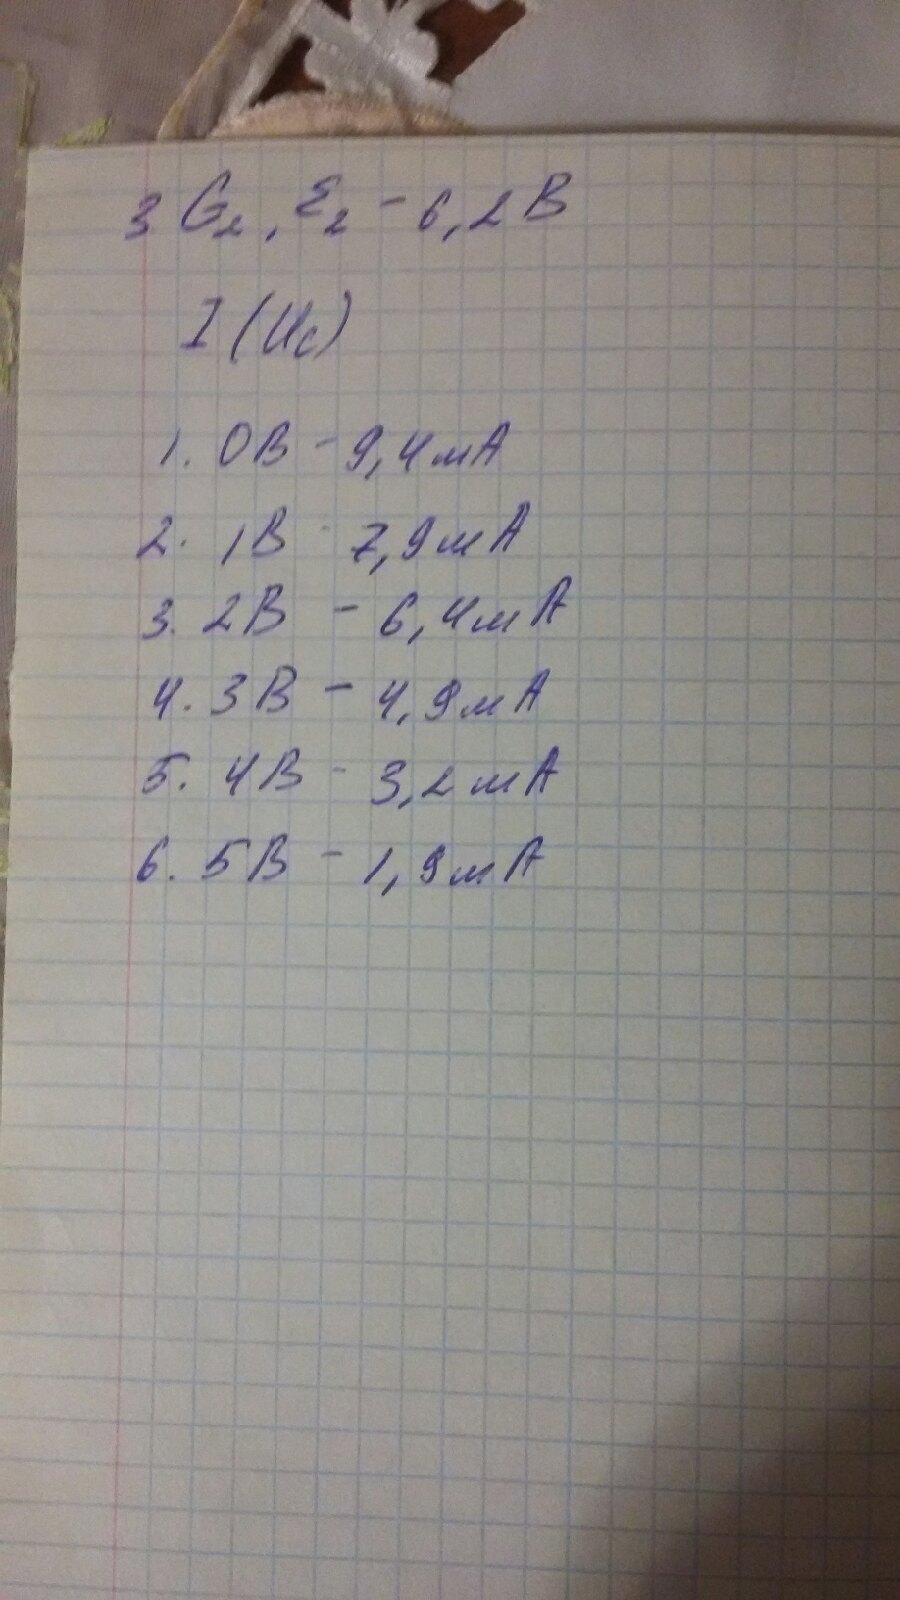 3 G₂, ε₂ - 6,2 В
I (Uc)
1. 0В - 9,4 мА
2. 1В - 7,9 мА
3. 2В - 6,4 мА
4. 3В - 4,9 мА
5. 4В - 3,2 мА
6. 5В - 1,9 мА